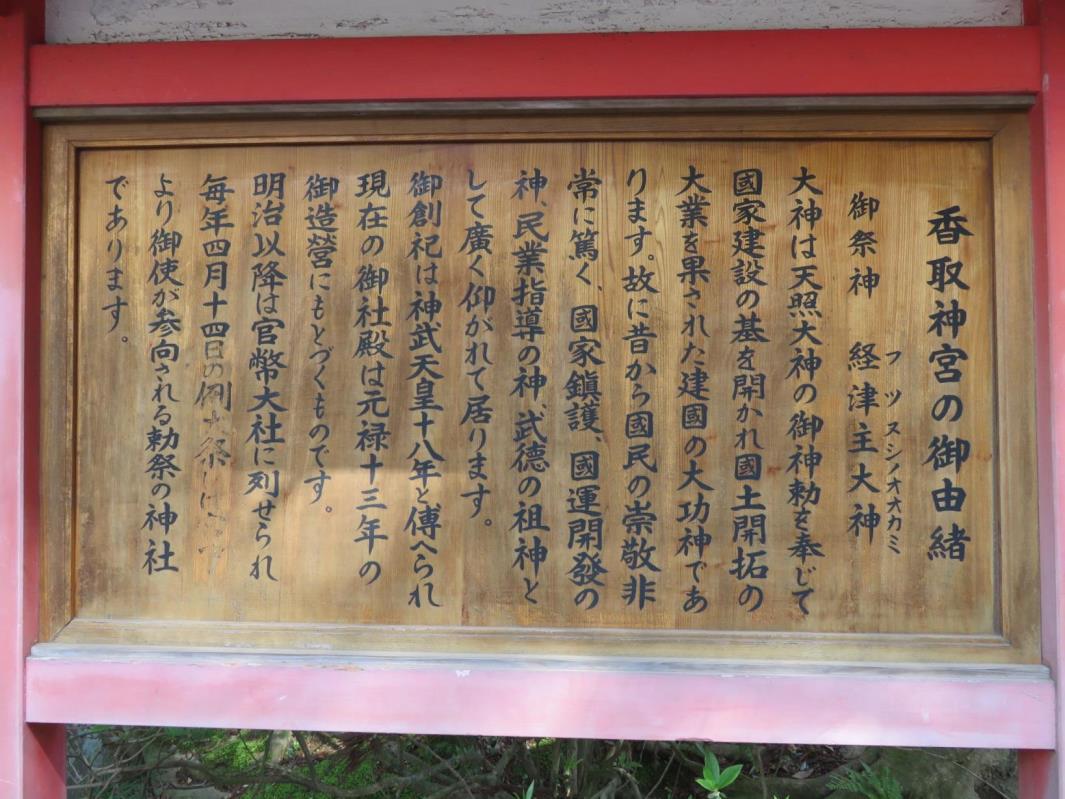 香取神宮の御由緒
御祭神 経津主大神
フツヌシノオオカミ
大神は天照大神の御神勅を奉じて
國家建設の基を開かれ國土開拓の
大業を果された建國の大功神であ
ります。故に昔から國民の崇敬非
常に篤く、國家鎮護、國運開發の
神、民業指導の神、武徳の祖神と
して廣く仰がれて居ります。
御創祀は神武天皇十八年と傳へられ
現在の御社殿は元禄十三年の
御造營にもとづくものです。
明治以降は官幣大社に列せられ
毎年四月十四日の例大祭には
より御使が参向される勅祭の神社
であります。